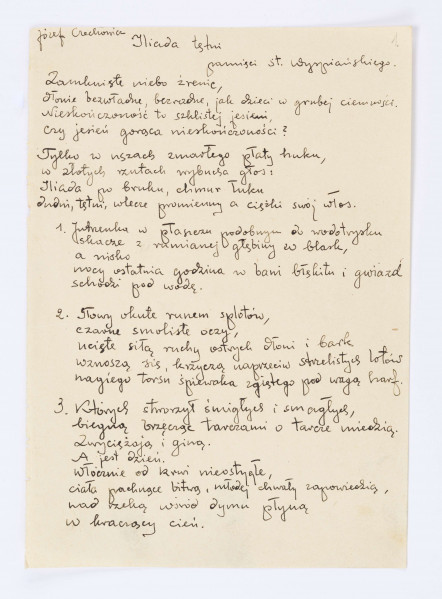 Józef Czechowicz
Iliada tętni
pamięci st. Wyspiańskiego.
Zamknięte niebo źrenic,
dłonie bezwładne, bezradne, jak dzieci w grubej ciemności.
Nieskończoność to szklistej jesieni,
czy jesień gorąca nieskończoności?
Tylko w uszach zmarłego płaty huku,
w złotych rzutach wybucha głos:
Iliada po bruku, chmur łuku
dudni, tętni, wlecze promienny a ciężki swój włos.
1. Jutrzenka w płaszczu podobnym do wodotrysku
skacze z rumianej głębiny w blask,
a nisko
nocy ostatnia godzina w bani błękitu i gwiazd
schodzi pod wodę.
2. Głowy okute runem splotów,
czarne smoliste oczy,
ucięte siłą ruchy ostrych dłoni i bark
wznoszą się, krzyczą naprzeciw strzelistych lotów
nagiego torsu śpiewaka zgiętego pod wagą harf.
3. Których stworzył śmigłych i smagłych,
biegną brzęcząc tarczami o tarcze miedzią.
Zwyciężają i giną.
A jest dzień.
Włócznie od krwi nieostygłe,
ciała pachnące bitwą, młodej chwały zapowiedzią,
nad rzeką wśród dymu płyną
w kraczący cień.